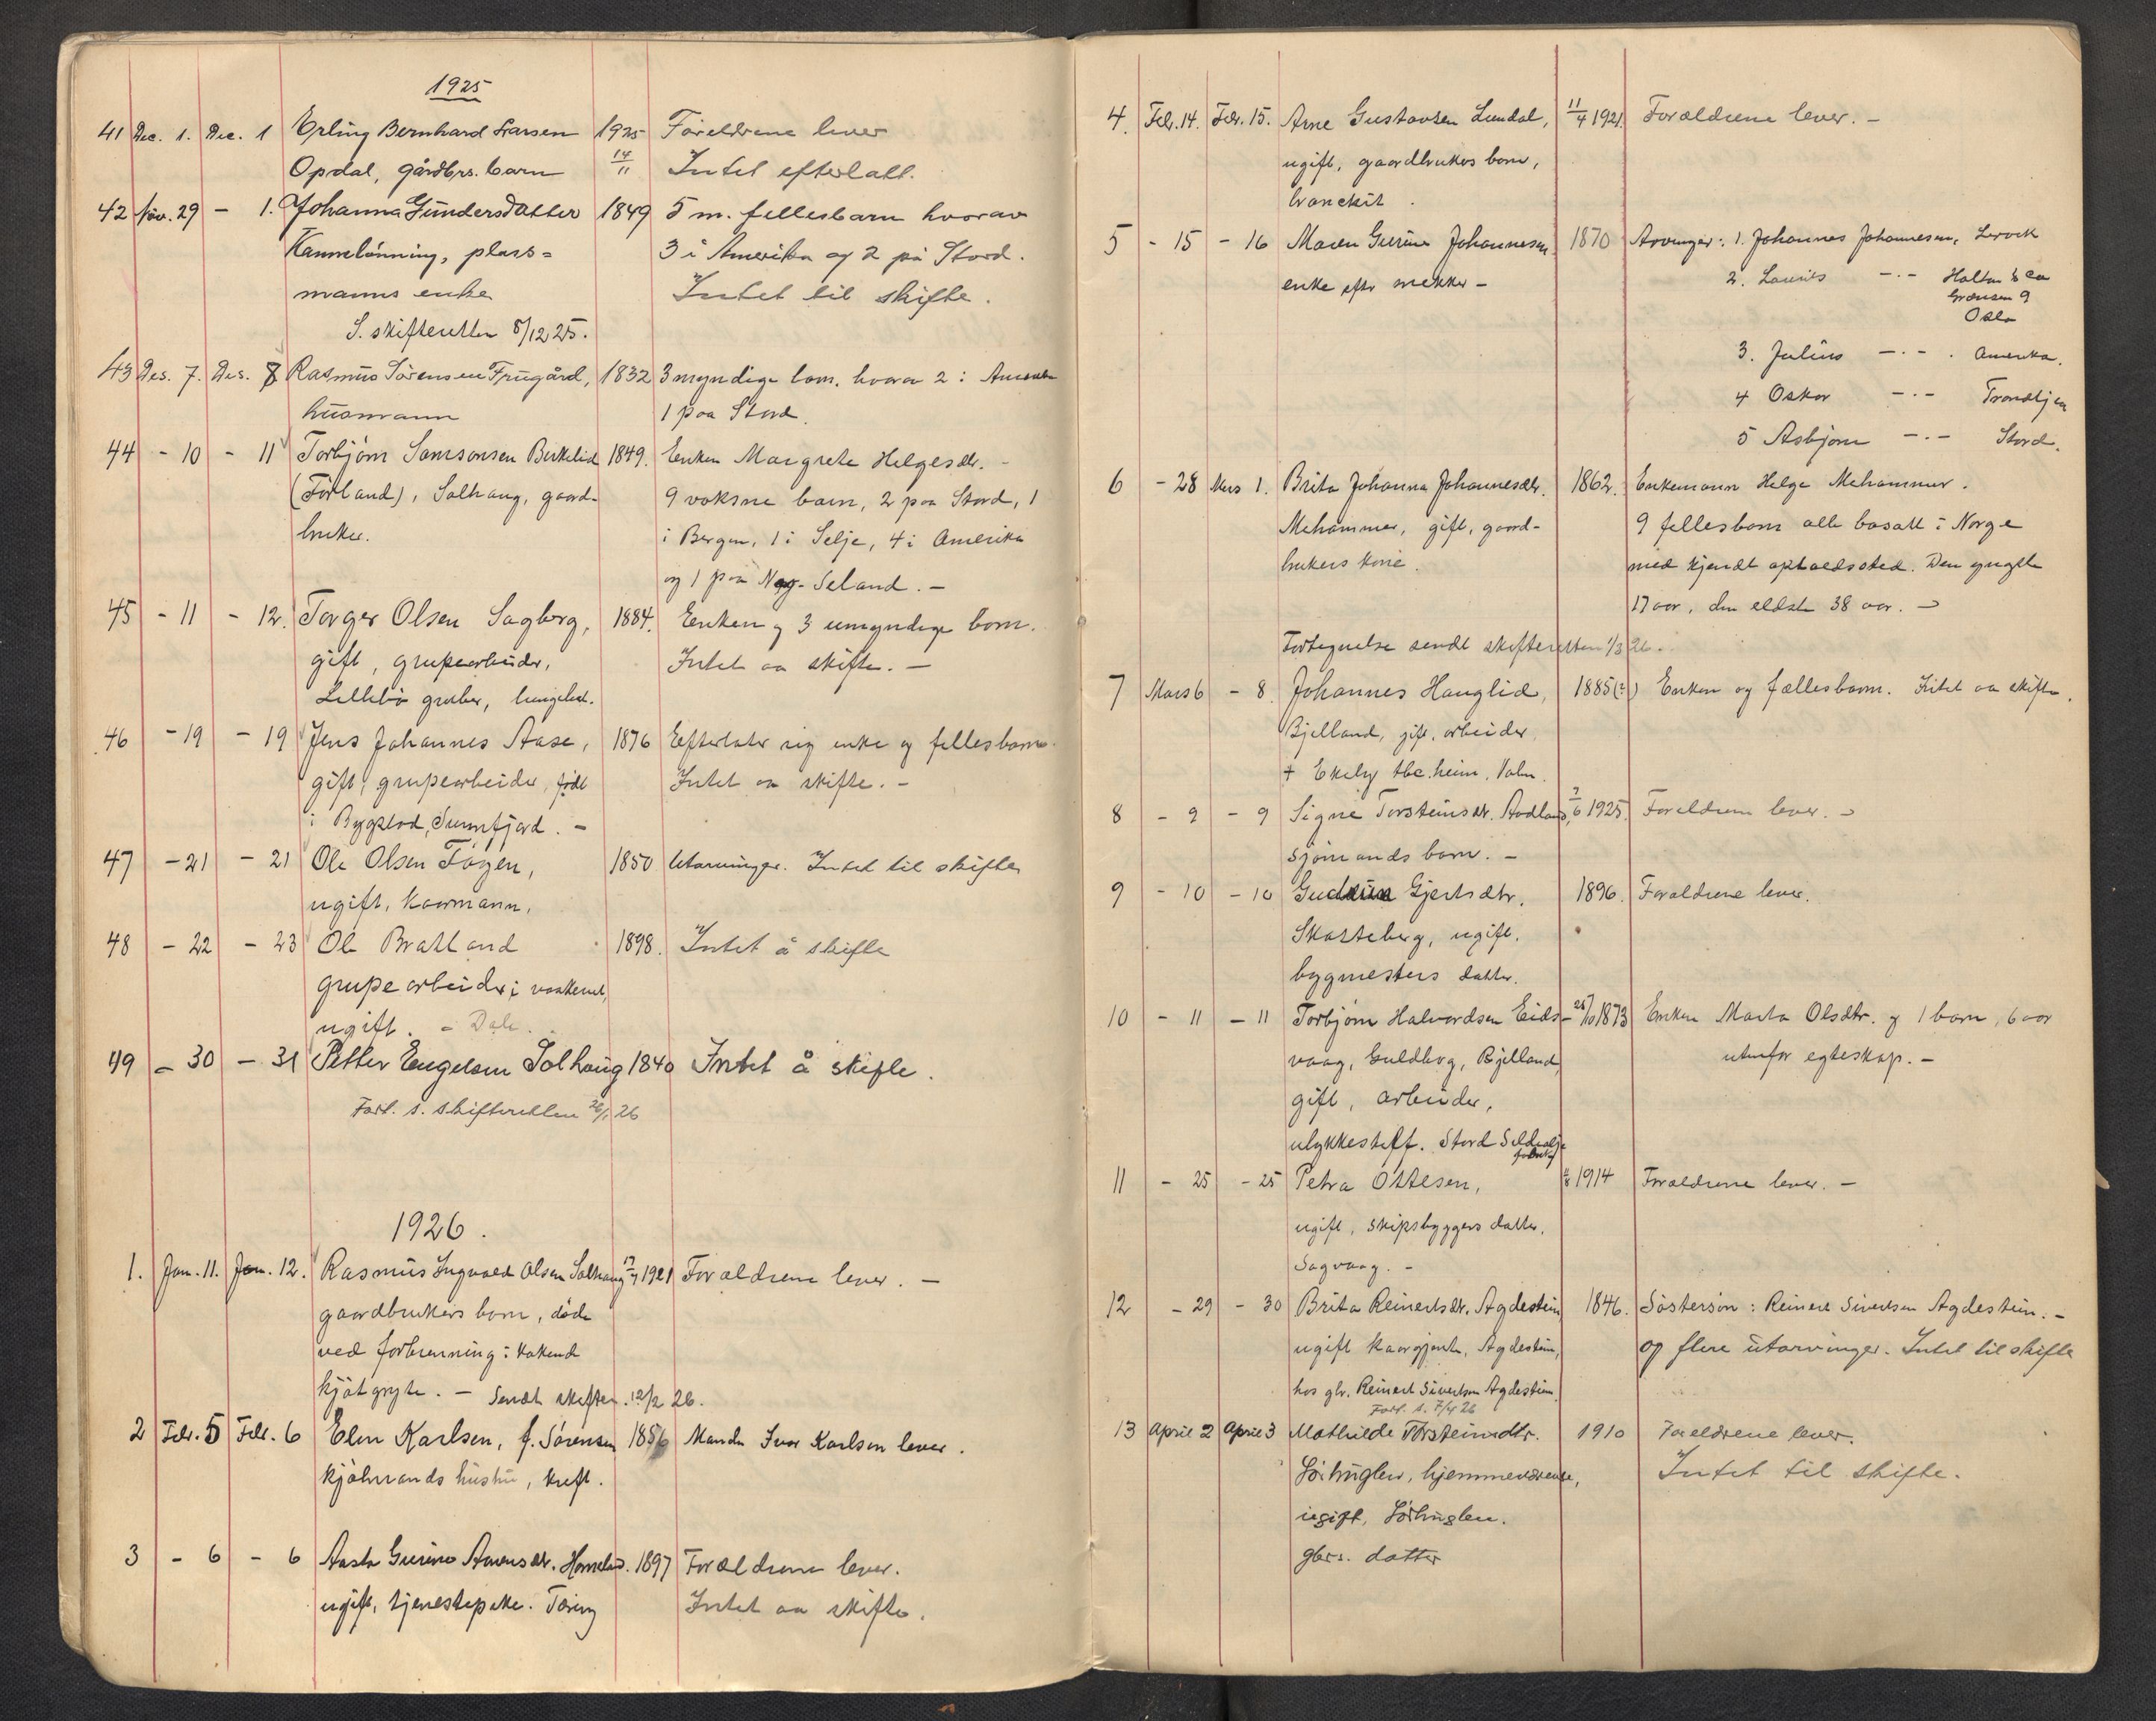 1925
41 Dec. 1. Dec. 1 Erling Bernhard Larsen 1925 Foreldrene lever
Opdal, gårdbrs. barn 14/11 Intet efterlatt.
42 Nov. 29 - 1. Johanna Gundersdatter 1849 5 m. fellesbarn hvorav
Kammelønning, plass= 3 i Amerika og 2 på Stord.
manns enke Intet til skifte.
S. skifteretten 8/12 25.
43 Des. 7. Des. 8 Rasmus Sørensen Frugård, 1832 3 myndige barn, hvorav 2 i Amerika
husmann 1 paa Stord.
44 - 10 - 11 Torbjørn Samsonsen Birkelid 1849. Enken Margrete Helgesdtr. -
(Førland), Solhaug, gaard- 9 voksne barn, 2 paa Stord, 1
bruker. i Bergen, 1 i Selje, 4 i Amerika
og 1 paa Ny-Seland. -
45 - 11 - 12. Torger Olsen Sagberg, 1884. Enken og 3 umyndige barn.
gift, grupearbeider, Intet aa skifte. -
Lillebø gruber,
46 - 19 - 19 Jens Johannes Aase, 1876 Efterlater sig enke og fellesbarn.
gift, grupearbeider, født Intet aa skifte. -
i Bygstad, Sunnfjord. -
47 - 21 - 21 Ole Olsen Tøgen, 1850 Utarvinger. Intet til skifte
ugift, kaarmann,
48 - 22 - 23 Ole Bratland 1898. Intet å skifte
grupearbeider i
ugift. - Dale.
49 - 30 - 31 Petter Engelsen Solhaug 1840 Intet å skifte.
Fort. s. skifteretten 26/1 26
1926.
1. Jan. 11. Jan. 12. Rasmus Ingvald Olsen Solhaug 17/9 1921 Forældrene lever. -
gaardbrukers barn, døde
ved forbrenning i kokende
kjøtgryte. - Sendt skifter. 12/2 26.
2 Febr. 5 Febr. 6 Elen Karlsen, f. Sørensen 1856 Manden Ivar Karlsen lever.
kjøbmands hustru, kreft.
3 - 6 - 6 Aasta Gurine Aanensdtr. Hommeland. 1897 Forældrene lever.
ugift, tjenestepike. Tæring Intet aa skifte.
4. Febr. 14. Febr. 15. Arne Gustavsen Lundal, 11/4 1921. Forældrene lever. -
ugift, gaardbrukers barn,
bronckit.
5 - 15 - 16 Maren Gurine Johannesen 1870 Arvinger: 1. Johannes Johannesen, Lervik
enke efter snekker - 2. Laurits -.- Holtan & Co
Grensen 9
Oslo
3. Julius -.- Amerika.
4 Oskar -.- Trondhjem
5 Asbjørn -.- Stord.
6 - 28 Mars 1. Brita Johanna Johannesdtr. 1862. Enkemann Helge Mehammer.
Mehammer, gift, gaard- 9 fellesbarn alle bosatt i Norge
brukers kone. med kjendt opholdssted. Den yngste
17 aar, den eldste 38 aar. -
Fortegnelse sendt skifteretten 1/3 26.
7 Mars 6 - 8. Johannes Hauglid, 1885 (?) Enken og fællesbarn. Intet aa skifte.
Bjelland, gift, arbeider,
+ Ekely tbc. heim, Valen.
8 - 9 - 9 Signe Torsteinsdtr. Aadland, 7/6 1925. Foreldrene lever. -
sjømands barn. -
9 - 10 - 10 Gudrun Gjertsdtr. 1896. Forældrene lever.
Skarteberg, ugift.
bygmesters datter.
10 - 11 - 11 Torbjørn Halvordsen Eids- 25/10 1873 Enken Marta Olsdtr. og 1 barn, 6 aar
vaag, Guldberg, Bjelland, utenfor egteskap. -
gift, arbeider,
ulykkestilf. Stord Sildolje-
fabrik
11 - 25 - 25 Petra Ottesen, 1914 Forældrene lever. -
ugift, skipsbyggers datter,
Sagvaag. -
12 - 29 - 30 Brita Reinertsdtr. Agdestein 1846. Søstersøn: Reinert Sivertsen Agdestein. -
ugift kaargjente, Agdestein, og flere utarvinger. Intet til skifte
hos gbr. Reinert Sivertsen Agdestein.
Fort. s. 7/4 26
13 April 2 April 3 Mathilde Torsteinsdtr. 1910 Foreldrene lever.
Sørhuglen, hjemmeværende, Intet til skifte.
ugift, Sørhuglen.
gbrs. datter